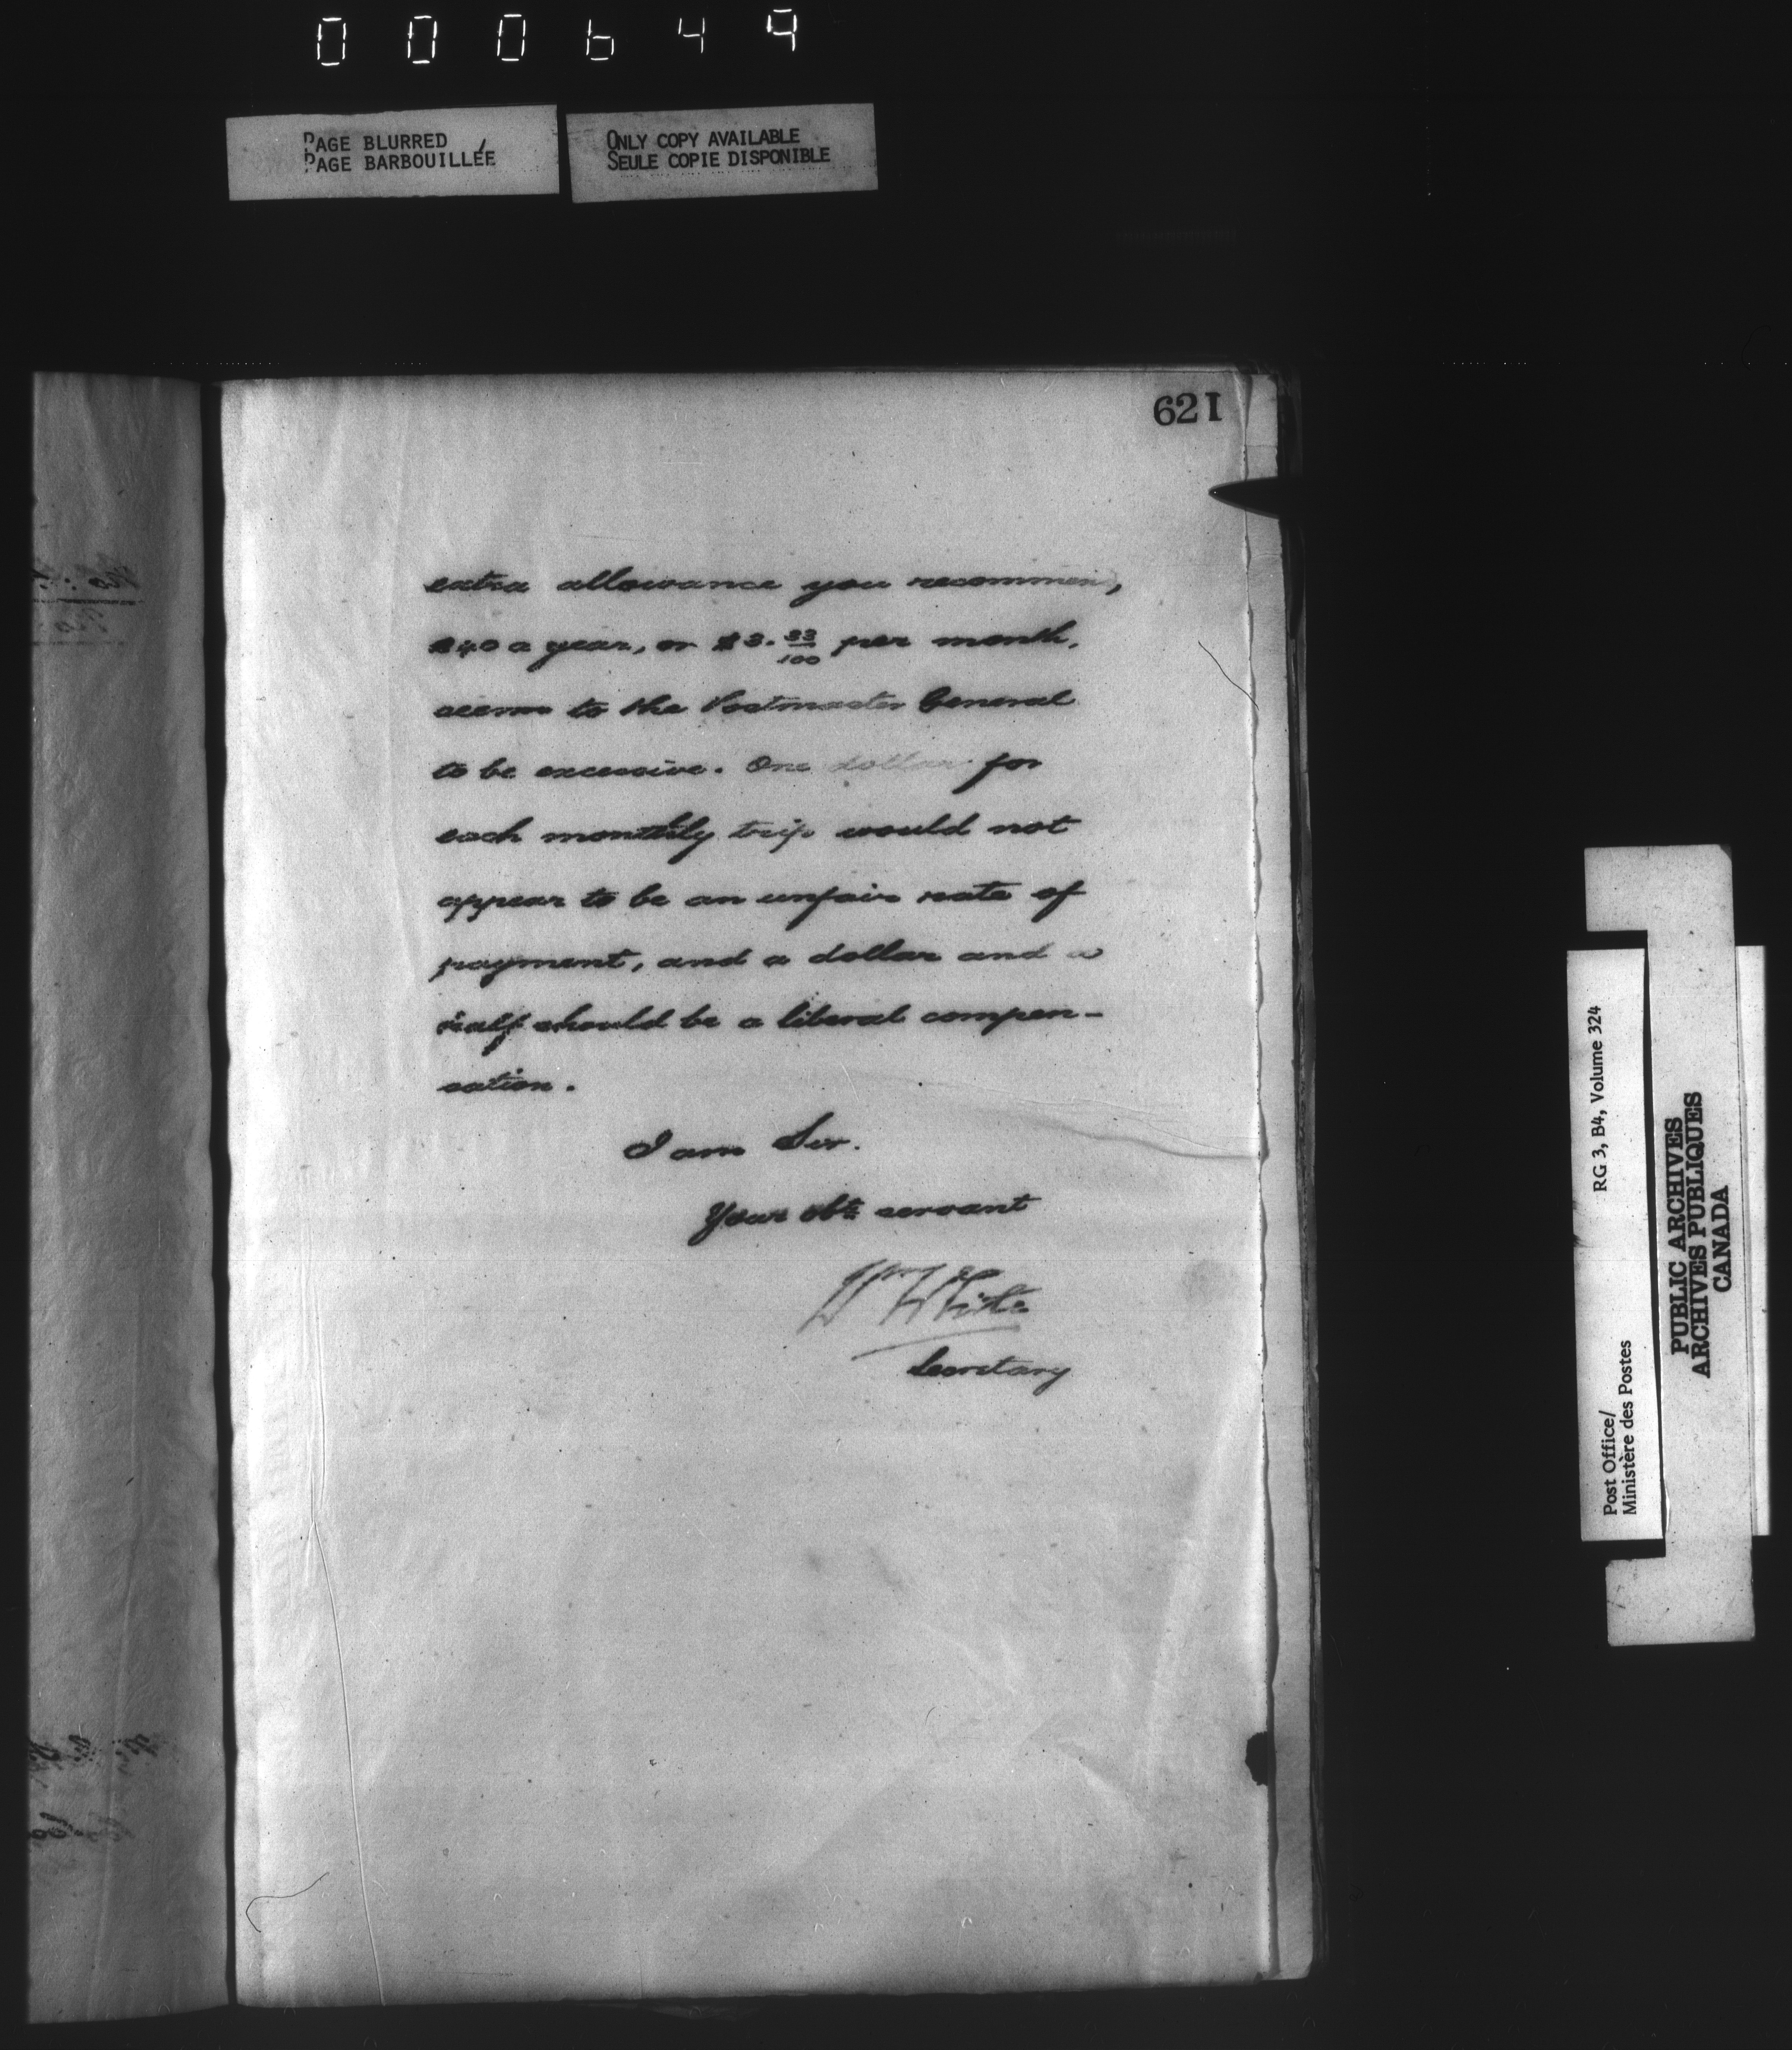 000649
PAGE BLURRED
PAGE BARBOUILLÉE
ONLY COPY AVAILABLE
SEULE COPIE DISPONIBLE
621
extra allowance you recommend,
$40 a year, or $3.33/100 per month,
seems to the Postmaster General
to be excessive. One dollar for
each monthly trip would not
appear to be an unfair rate of
payment, and a dollar and a
half should be a liberal compen-
sation.
I am Sir.
Your obt servant
Wm White
Secretary
RG 3, B4, Volume 324
Post Office/
Ministère des Postes
PUBLIC ARCHIVES
ARCHIVES PUBLIQUES
CANADA